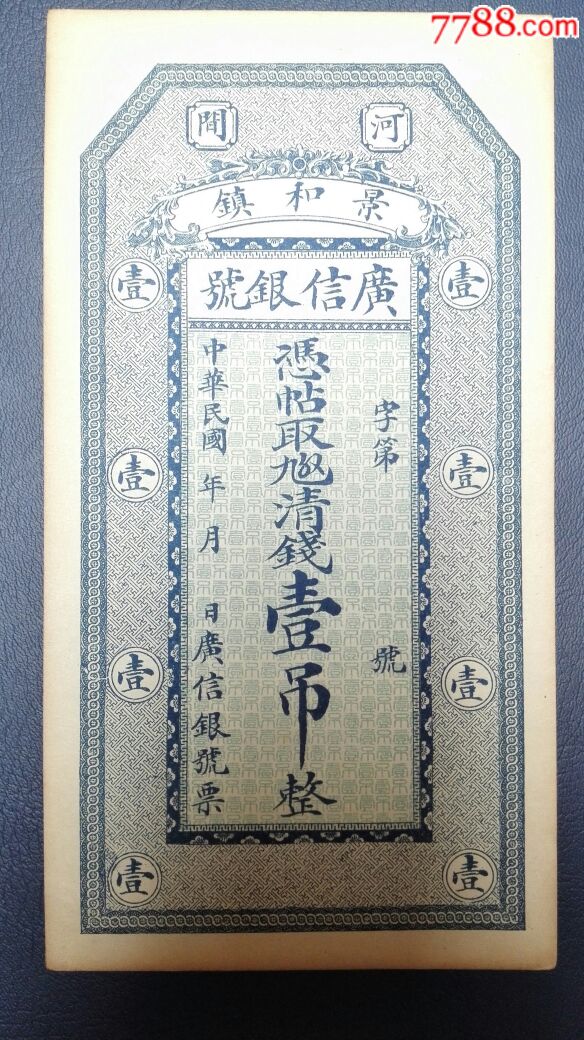 7788.com
河間
景和鎮
廣信銀號
壹 壹
壹 壹
壹 壹
壹 壹
字第 號
憑帖取 清錢壹吊整
中華民國 年 月 日廣信銀號票